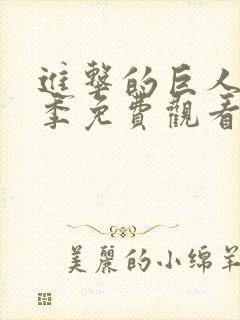 進擊的巨人
季免費觀看
美麗的小绵羊